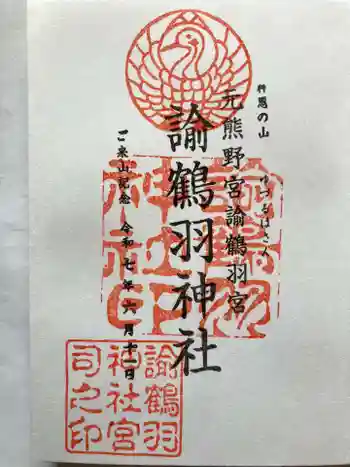 梼恩の山
ゆづるはさん
元熊野宮諭鶴羽宮
諭鶴羽神社
ご来山記念 令和七年六月十一日
諭鶴羽
神社
諭鶴羽
神社宮
司之印